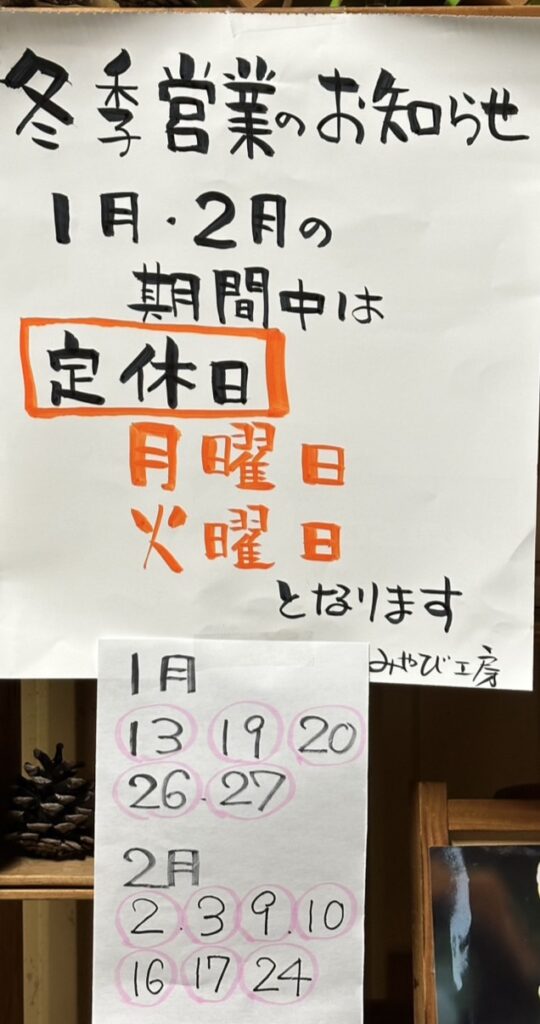 冬季営業のお知らせ
1月・2月の
期間中は
定休日
月曜日
火曜日
となります
みやび工房
1月
13 19 20
26.27
2月
2.3 9.10
16 17 24